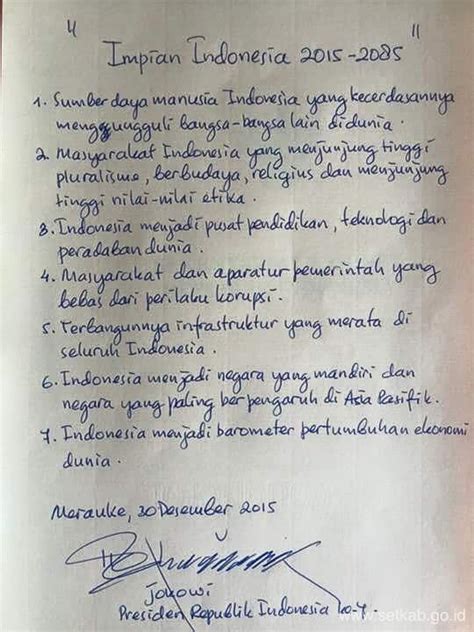 " Impian Indonesia 2015-2085 "
1. Sumber daya manusia Indonesia yang kecerdasannya
mengungguli bangsa-bangsa lain didunia.
2. Masyarakat Indonesia yang menjunjung tinggi
pluralisme, berbudaya, religius dan menjunjung
tinggi nilai-nilai etika.
3. Indonesia menjadi pusat pendidikan, teknologi dan
peradaban dunia.
4. Masyarakat dan aparatur pemerintah yang
bebas dari perilaku korupsi.
5. Terbangunnya infrastruktur yang merata di
seluruh Indonesia.
6. Indonesia menjadi negara yang mandiri dan
negara yang paling berpengaruh di Asia Pasifik.
7. Indonesia menjadi barometer pertumbuhan ekonomi
dunia.
Merauke, 30 Desember 2015
Jokowi
Presiden Republik Indonesia ke-7.
www.setkab.go.id